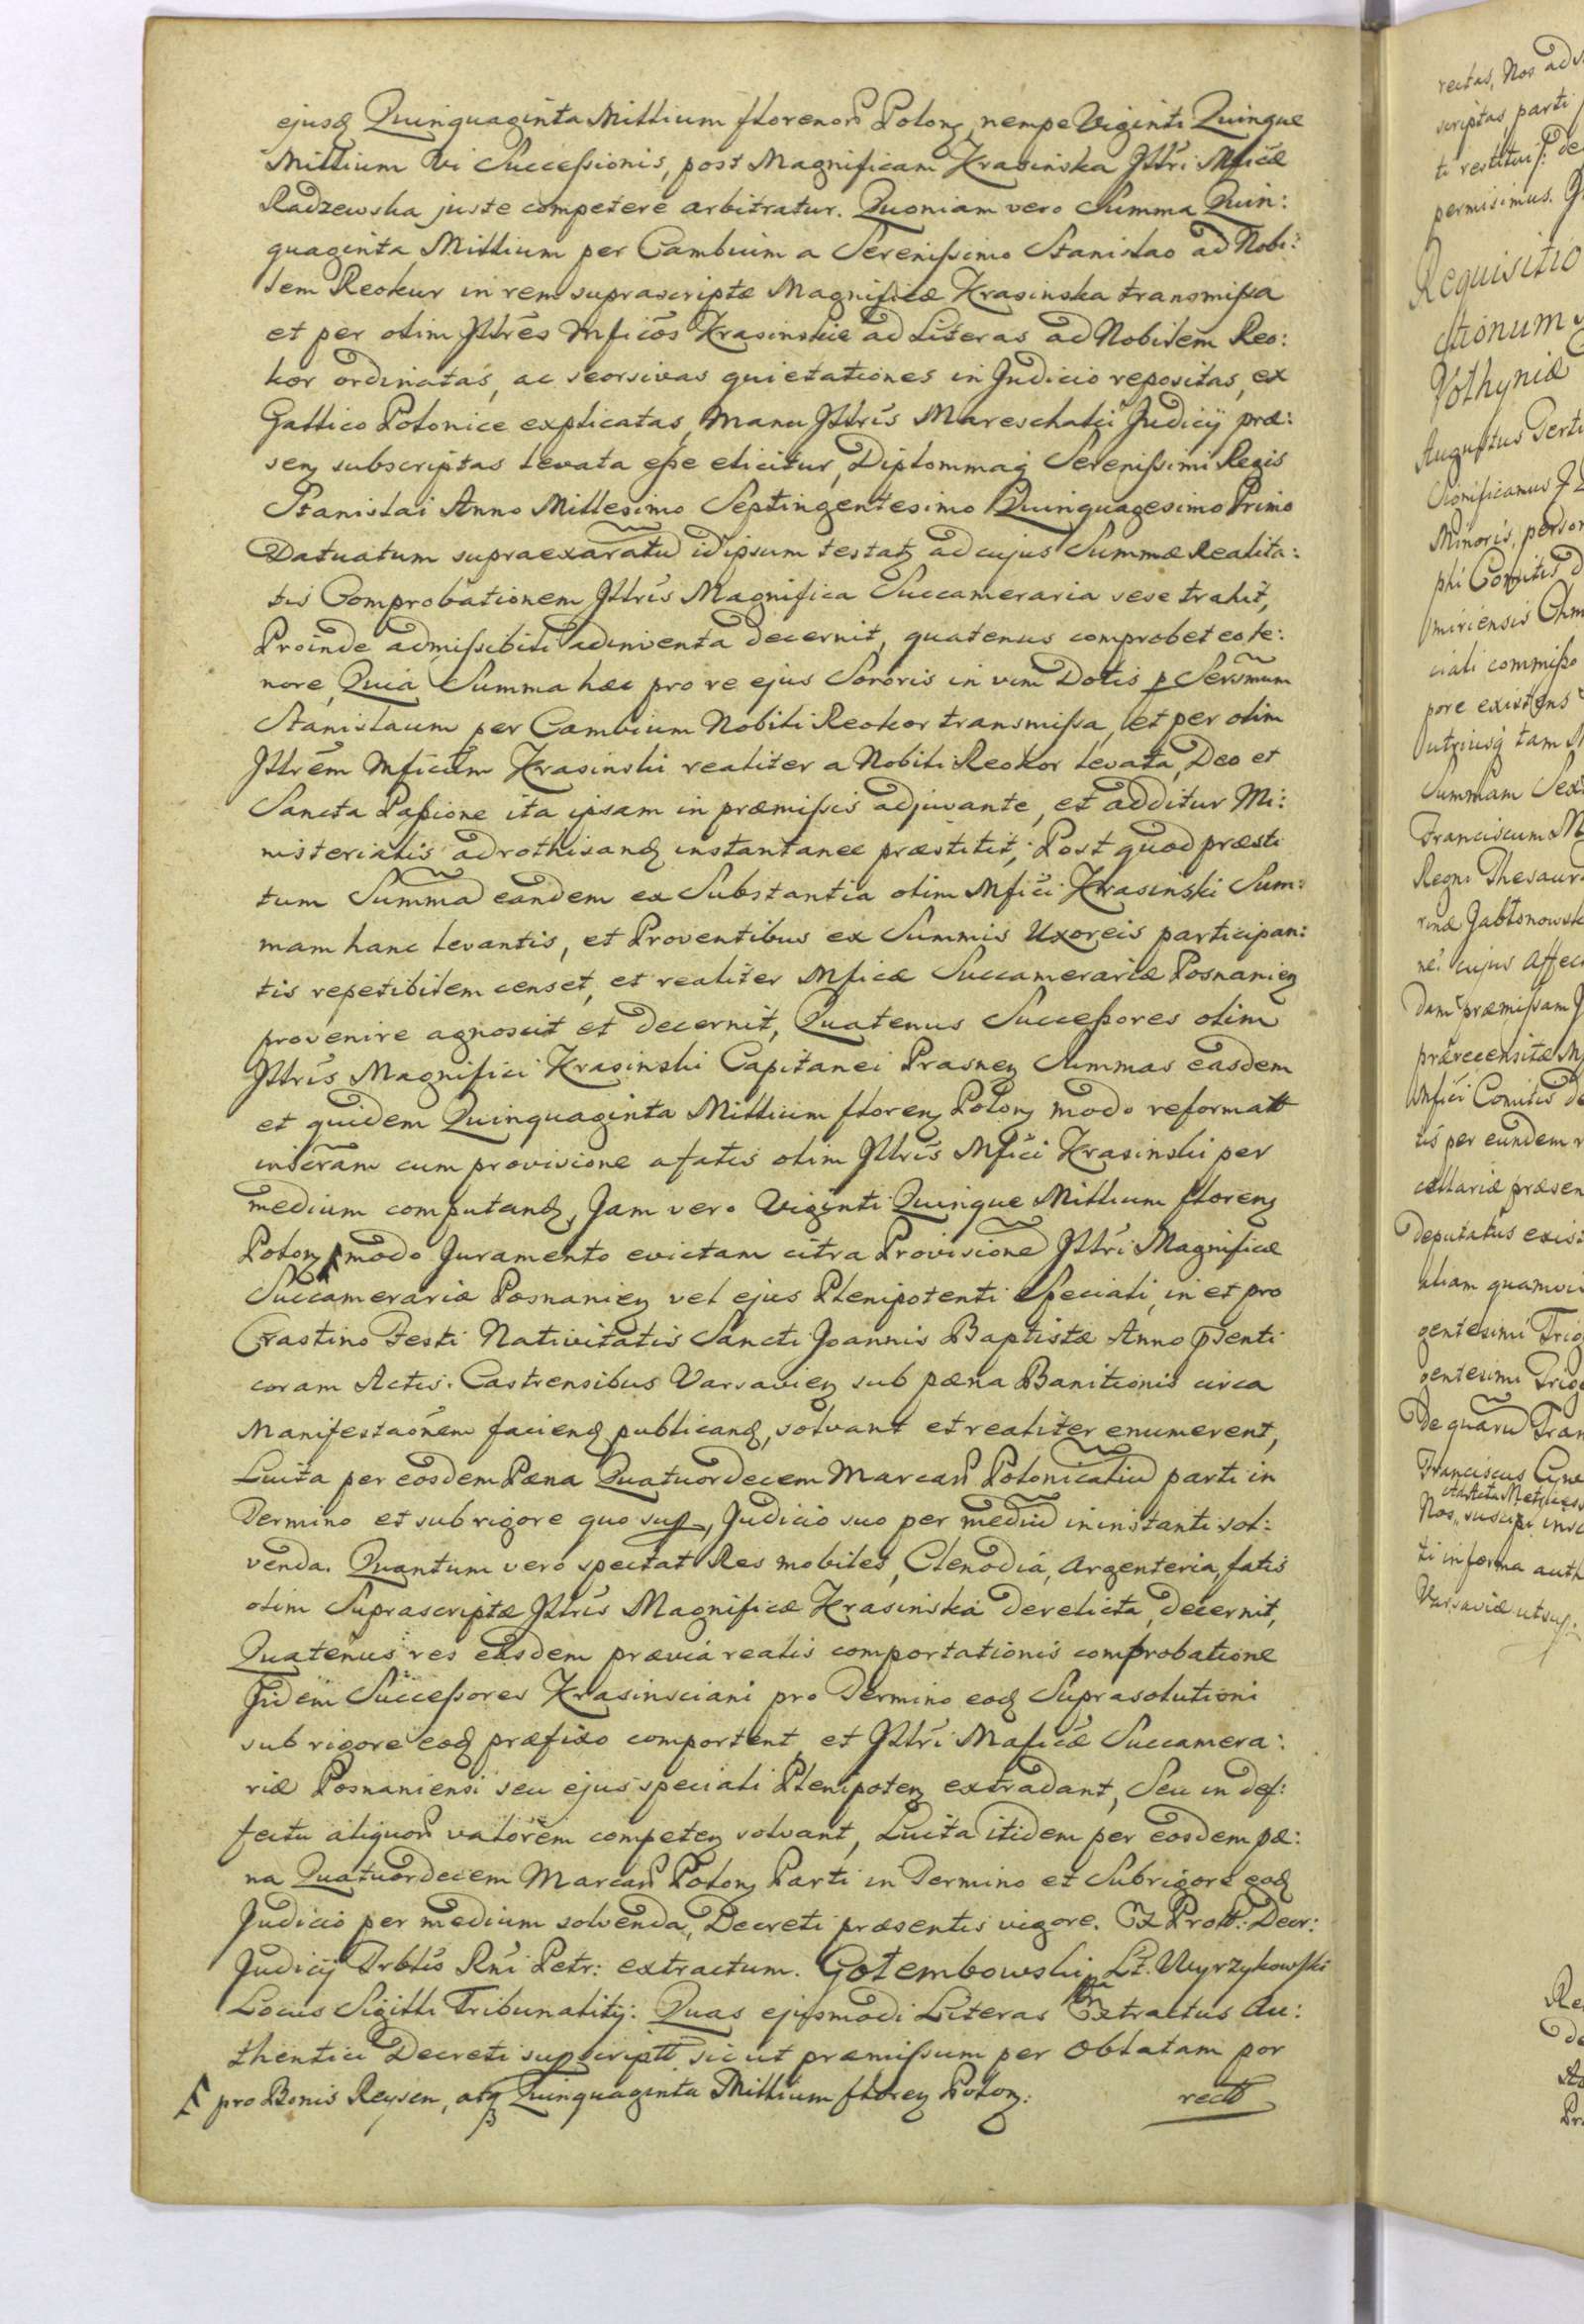 ejusq Quinquaginta Millium florenor Polon, nempe Viginti Quinque
Millium vi Successionis, post Magnificam Krasinska Jllri Mficæ
Radzewska juste competere arbitratur. Quoniam vero Summa Quin:
quaginta Millium per Cambium a Serenissimo Stanislao ad Nobi:
lem Reokur in rem suprascriptæ Magnificæ Krasinska transmissa
et per olim Jllres Mficos Krasinskie ad Literas ad Nobilem Reo:
kor ordinatas, ac seorsivas quietationes in Judicio repositas, ex
Gallico Polonice explicatas, manu Jllris Mareschalci Judicij præ:
sen subscriptas levata esse elicitur, Diplommaq Serenissimi Regis
Stanislai Anno Millesimo Septingentesimo Quinquagesimo Primo
Datuatum supraexaratu idipsum testat ad cujus Summæ Realita:
tis Comprobationem Jllris Magnifica Succameraria sese trahit,
Proinde admissibili adinventa decernit, quatenus comprobet eo te:
nore, Quia Summa hæc pro re ejus Sororis in vim Dotis p Sersmum
Stanislaum per Cambium Nobili Reokor transmissa, et per olim
Jllrem Mficum Krasinski realiter a Nobili Reokor levata, Deo et
Sancta Passione ita ipsam in præmissis adjuvante, et additur Mi:
nisterialis ad rothisand instantanee præstitit, Post quod præsti
tum Summa eandem ex Substantia olim Mfici Krasinski Sum:
mam hanc levantis, et Proventibus ex Summis Uxoreis participan:
tis repetibilem censet, et realiter Mficæ Succamerariæ Posnanien
provenire agnoscit et decernit, Quatenus Successores olim
Jllris Magnifici Krasinski Capitanei Prasnen Summas easdem
et quidem Quinquaginta Millium floren Polon modo reformatt
inscram cum provisione a fatis olim Jllris Mfici Krasinski per
medium computand, Jam vero Viginti Quinque Millium floren
Polon modo Juramento evictam citra Provisione Jllri Magnificæ
Succamerariæ Posnanien vel ejus Plenipotenti Speciali, in et pro
Crastino Festi Nativitatis Sancti Joannis Baptistæ Anno psenti
coram Actis Castrensibus Varsavien sub pæna Banitionis circa
Manifestaonem faciend publicand, solvant et realiter enumerent,
Luita per eosdem Pæna Quatuordecem Marcar Polonicaliu parti in
Termino et sub rigore quo sup, Judicio suo per mediu in instanti sol:
venda. Quantum vero spectat Res mobiles, Clenodia, Argenteria, fatis
olim Suprascriptæ Jllris Magnificæ Krasinska derelicta, decernit,
Quatenus res easdem prævia realis comportationis comprobatione
Jidem Successores Krasinsciani pro Termino eod Suprasolutioni
sub rigore eod præfixo comportent, et Jllri Maficæ Succamera:
riæ Posnaniensi seu ejus speciali Plenipoten extradant, Seu in def:
fectu aliquor valorem competen solvant, Luita itidem per eosdem pæ:
na Quatuordecem Marcar Polon Parti in Termino et Sub rigore eod
Judicio per medium solvenda, Decreti præsentis vigore. Ex Protl: Decr:
Judicij Trblis Rni Petr: extractum. Gotembowski Lt. Wyrzykowski
Locus Sigilli Tribunalitij: Quas ejusmodi Literas Extractus Au:
thentici Decreti supscriptt sicut præmissum per Oblatam por
pro Bonis Reysen, atq Quinquaginta Millium floren Polon:
rectt
rectas, Nos
scriptas, parti
permisimus.
Requisitio
Vothyniæ
Augustus Terti
Minoris, person
ciali commisso
pore existens
Summam Sex
Franciscum M
Regni Thesaur
rinæ Jabłonowsk
cujus Affec
Dam præmissam
præreensitæ M
Mfici Comitis
tis per eundem
cellariæ præsen
Deputatus exis
aliam quamvi
gentesimi Trig
gentesimi Trig
De quaru Tran
Franciscus Cyne
Nos suscepi
ti in forma auth
Varsaviæ ut sup.